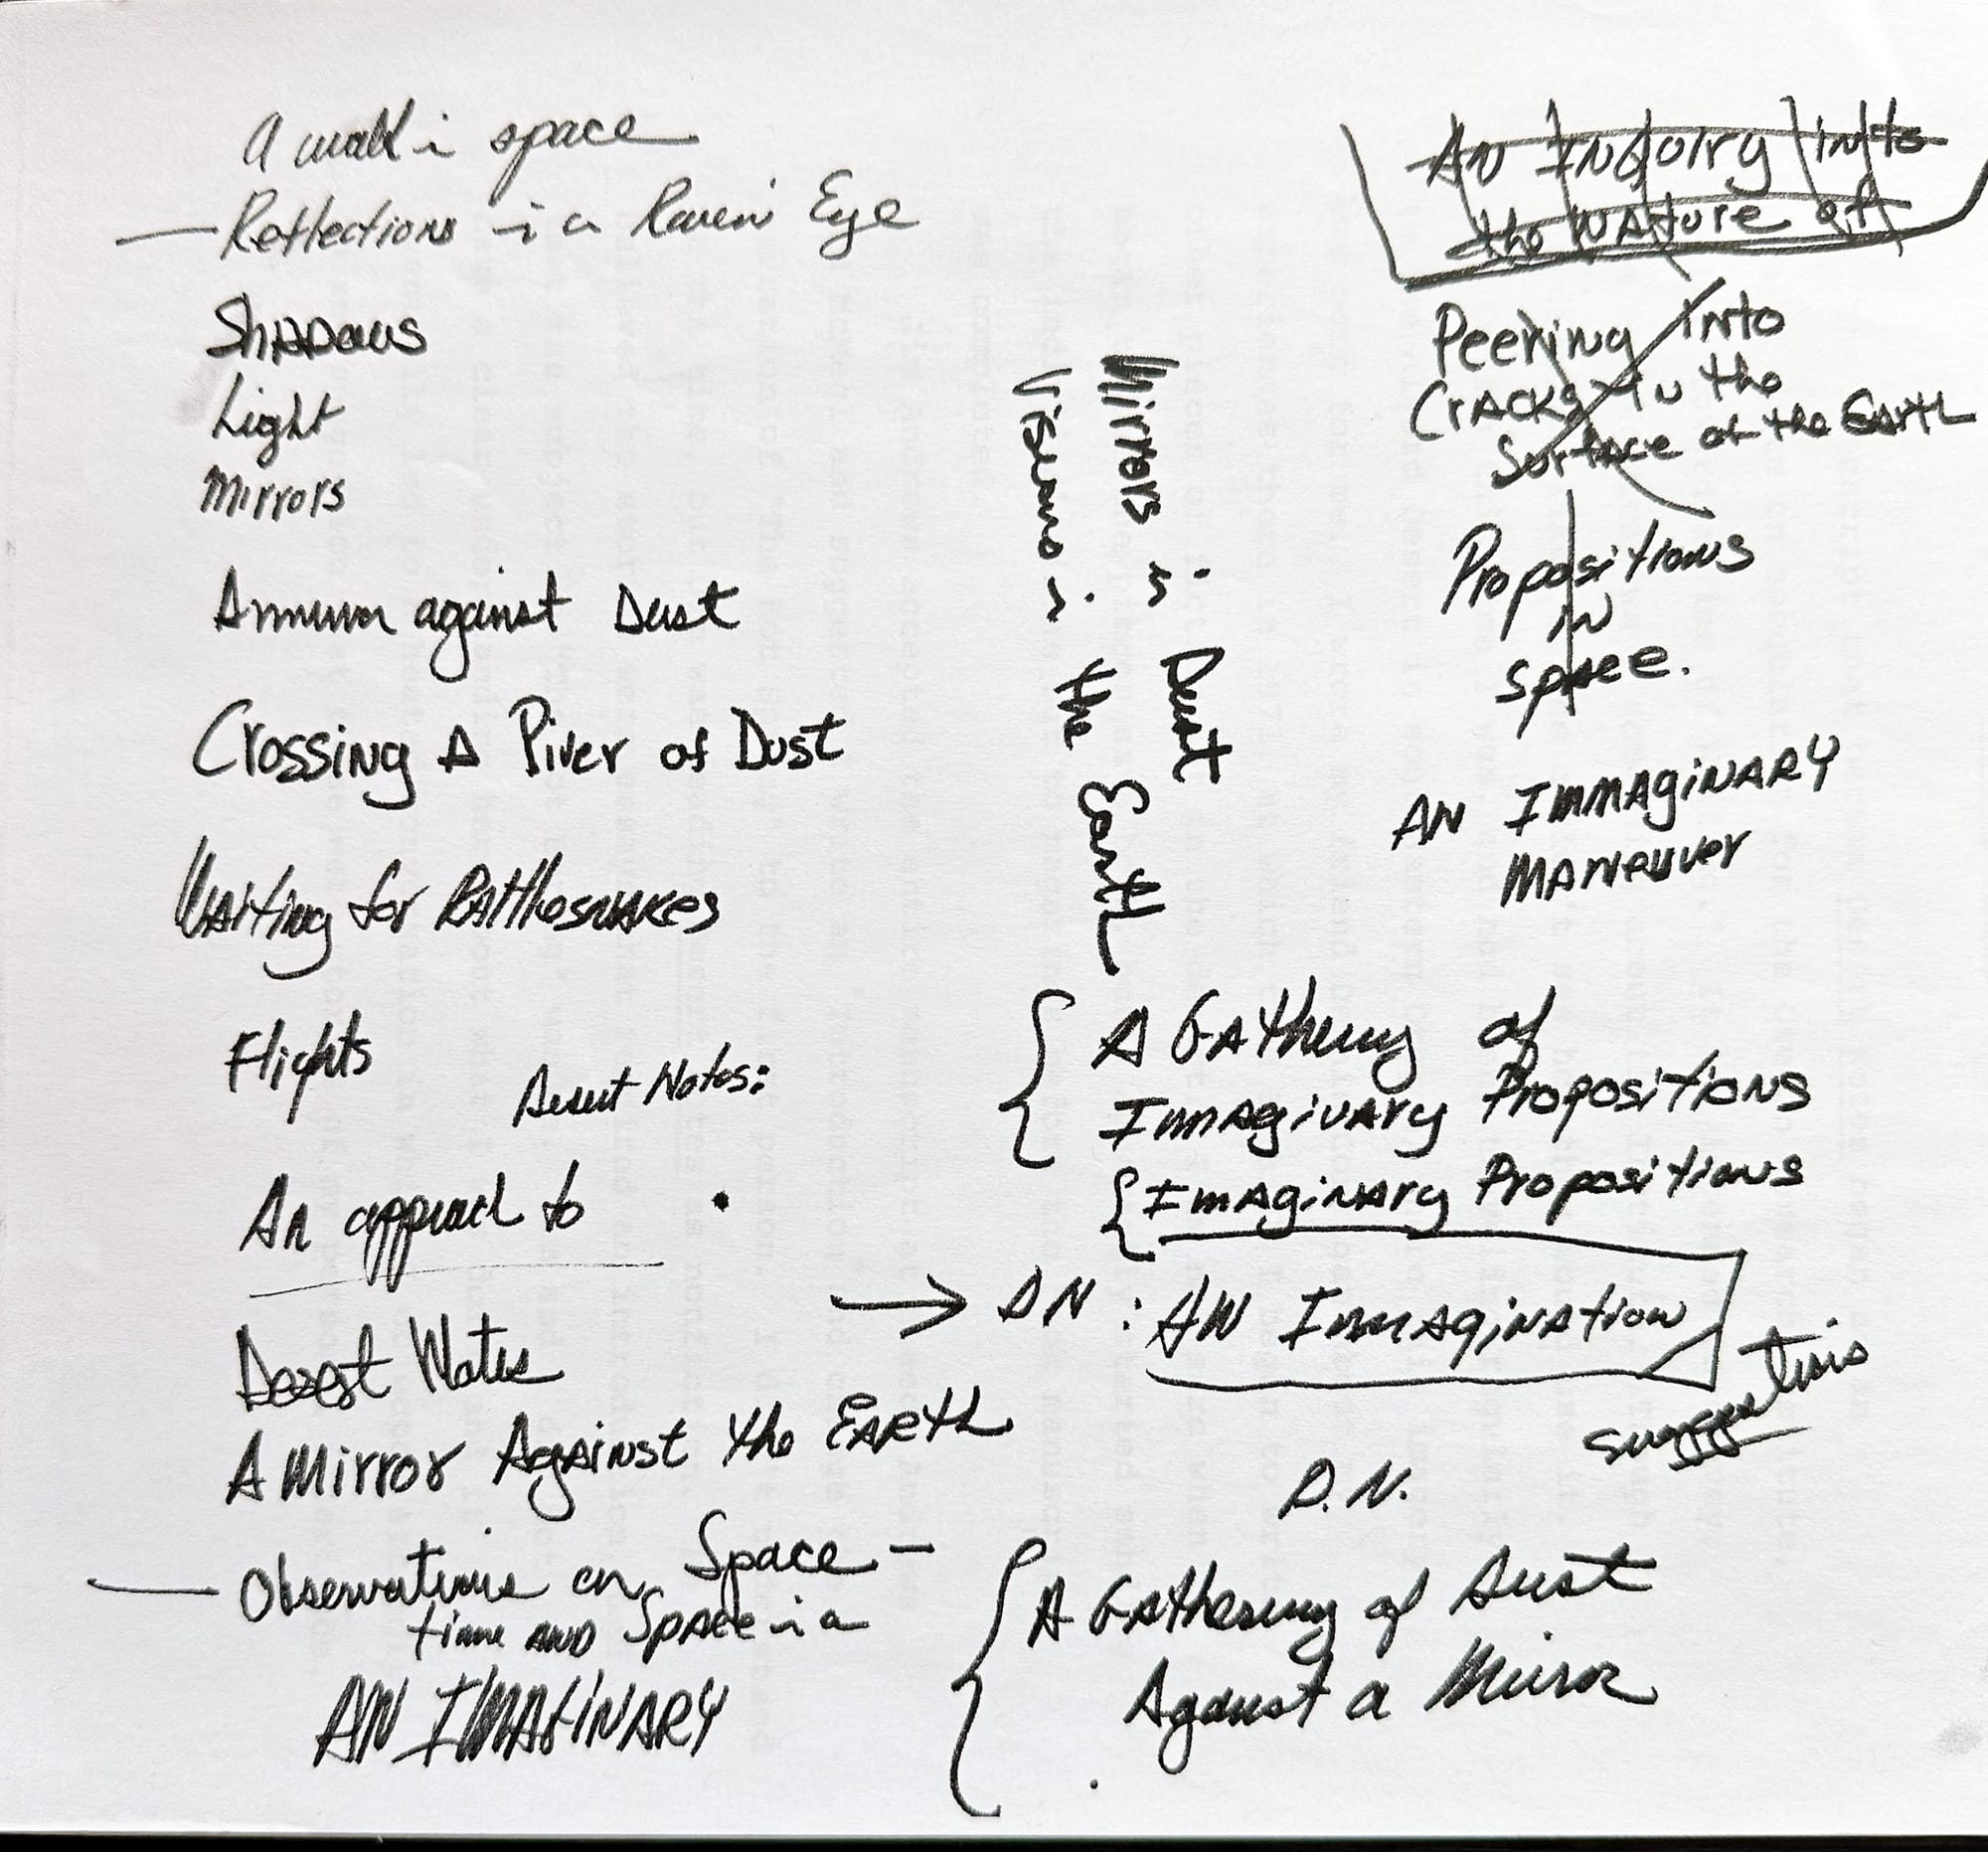 A walk in space
— Reflections in a Raven's Eye
Shadows
Light
Mirrors
against Dust
Crossing A River of Dust
Waiting for Rattlesnakes
Flights
Desert Notes:
An approach to
Desert Notes
A Mirror Against the EARTH
— Observations on Space —
time AND Space in a
AN IMAGINARY
Mirrors in Dust
Visions in the Earth
AN INQUIry into
the NAture of
Peering into
CrACKS IN the
Surface of the EArth
Propositions
IN
space.
AN IMMAgiNARY
MANeuver
{ A GAthering of
Immaginary Propositions
{ Imaginary Propositions
→ DN : AN Immagination
suggestions
D.N.
{ A GAthering of Dust
Against a Mirror